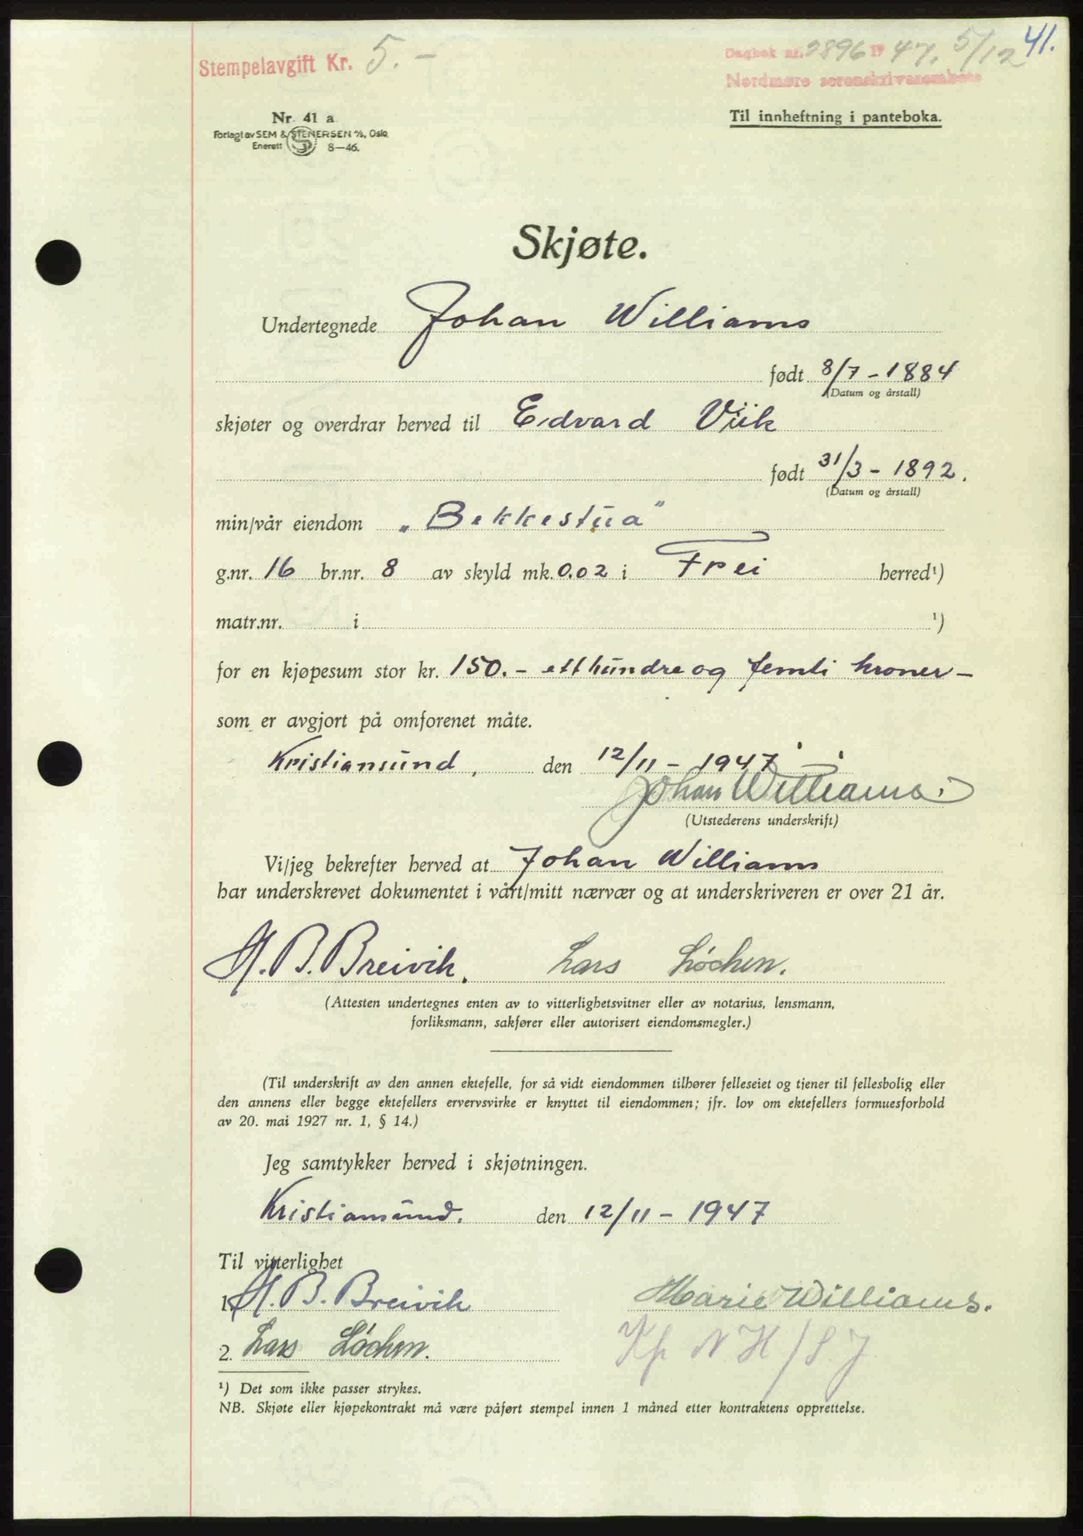 Stempelavgift Kr. 5.-
Dagbok nr. 2896 19 47. 5/12 41.
Nordmøre sorenskriverembete
Nr. 41 a
Forlagt av SEM & STENERSEN A/S, Oslo
Enerett 8—46.
Til innheftning i panteboka.
Skjøte.
Undertegnede Johan Williams
født 8/7 - 1884
(Datum og årstall)
skjøter og overdrar herved til Edvard Viik
født 31/3 - 1892.
(Datum og årstall)
min/vår eiendom „Bekkestua"
g.nr. 16 br.nr. 8 av skyld mk. 0.02 i Frei herred¹)
matr.nr. i ¹)
for en kjøpesum stor kr. 150.- etthundre og femti kroner -
som er avgjort på omforenet måte.
Kristiansund, den 12/11 - 1947
Johan Williams.
(Utstederens underskrift)
Vi/jeg bekrefter herved at Johan Williams
har underskrevet dokumentet i vårt/mitt nærvær og at underskriveren er over 21 år.
H. B. Breivik. Lars Lóchen.
(Attesten undertegnes enten av to vitterlighetsvitner eller av notarius, lensmann,
forliksmann, sakfører eller autorisert eiendomsmegler.)
(Til underskrift av den annen ektefelle, for så vidt eiendommen tilhører felleseiet og tjener til fellesbolig eller
den annens eller begge ektefellers ervervsvirke er knyttet til eiendommen; jfr. lov om ektefellers formuesforhold
av 20. mai 1927 nr. 1, § 14.)
Jeg samtykker herved i skjøtningen.
Kristiansund. den 12/11 - 1947
Til vitterlighet
1. H. B. Breivik Marie Williams.
2. Lars Lóchen. Kp NH/SJ
¹) Det som ikke passer strykes.
NB. Skjøte eller kjøpekontrakt må være påført stempel innen 1 måned etter kontraktens opprettelse.